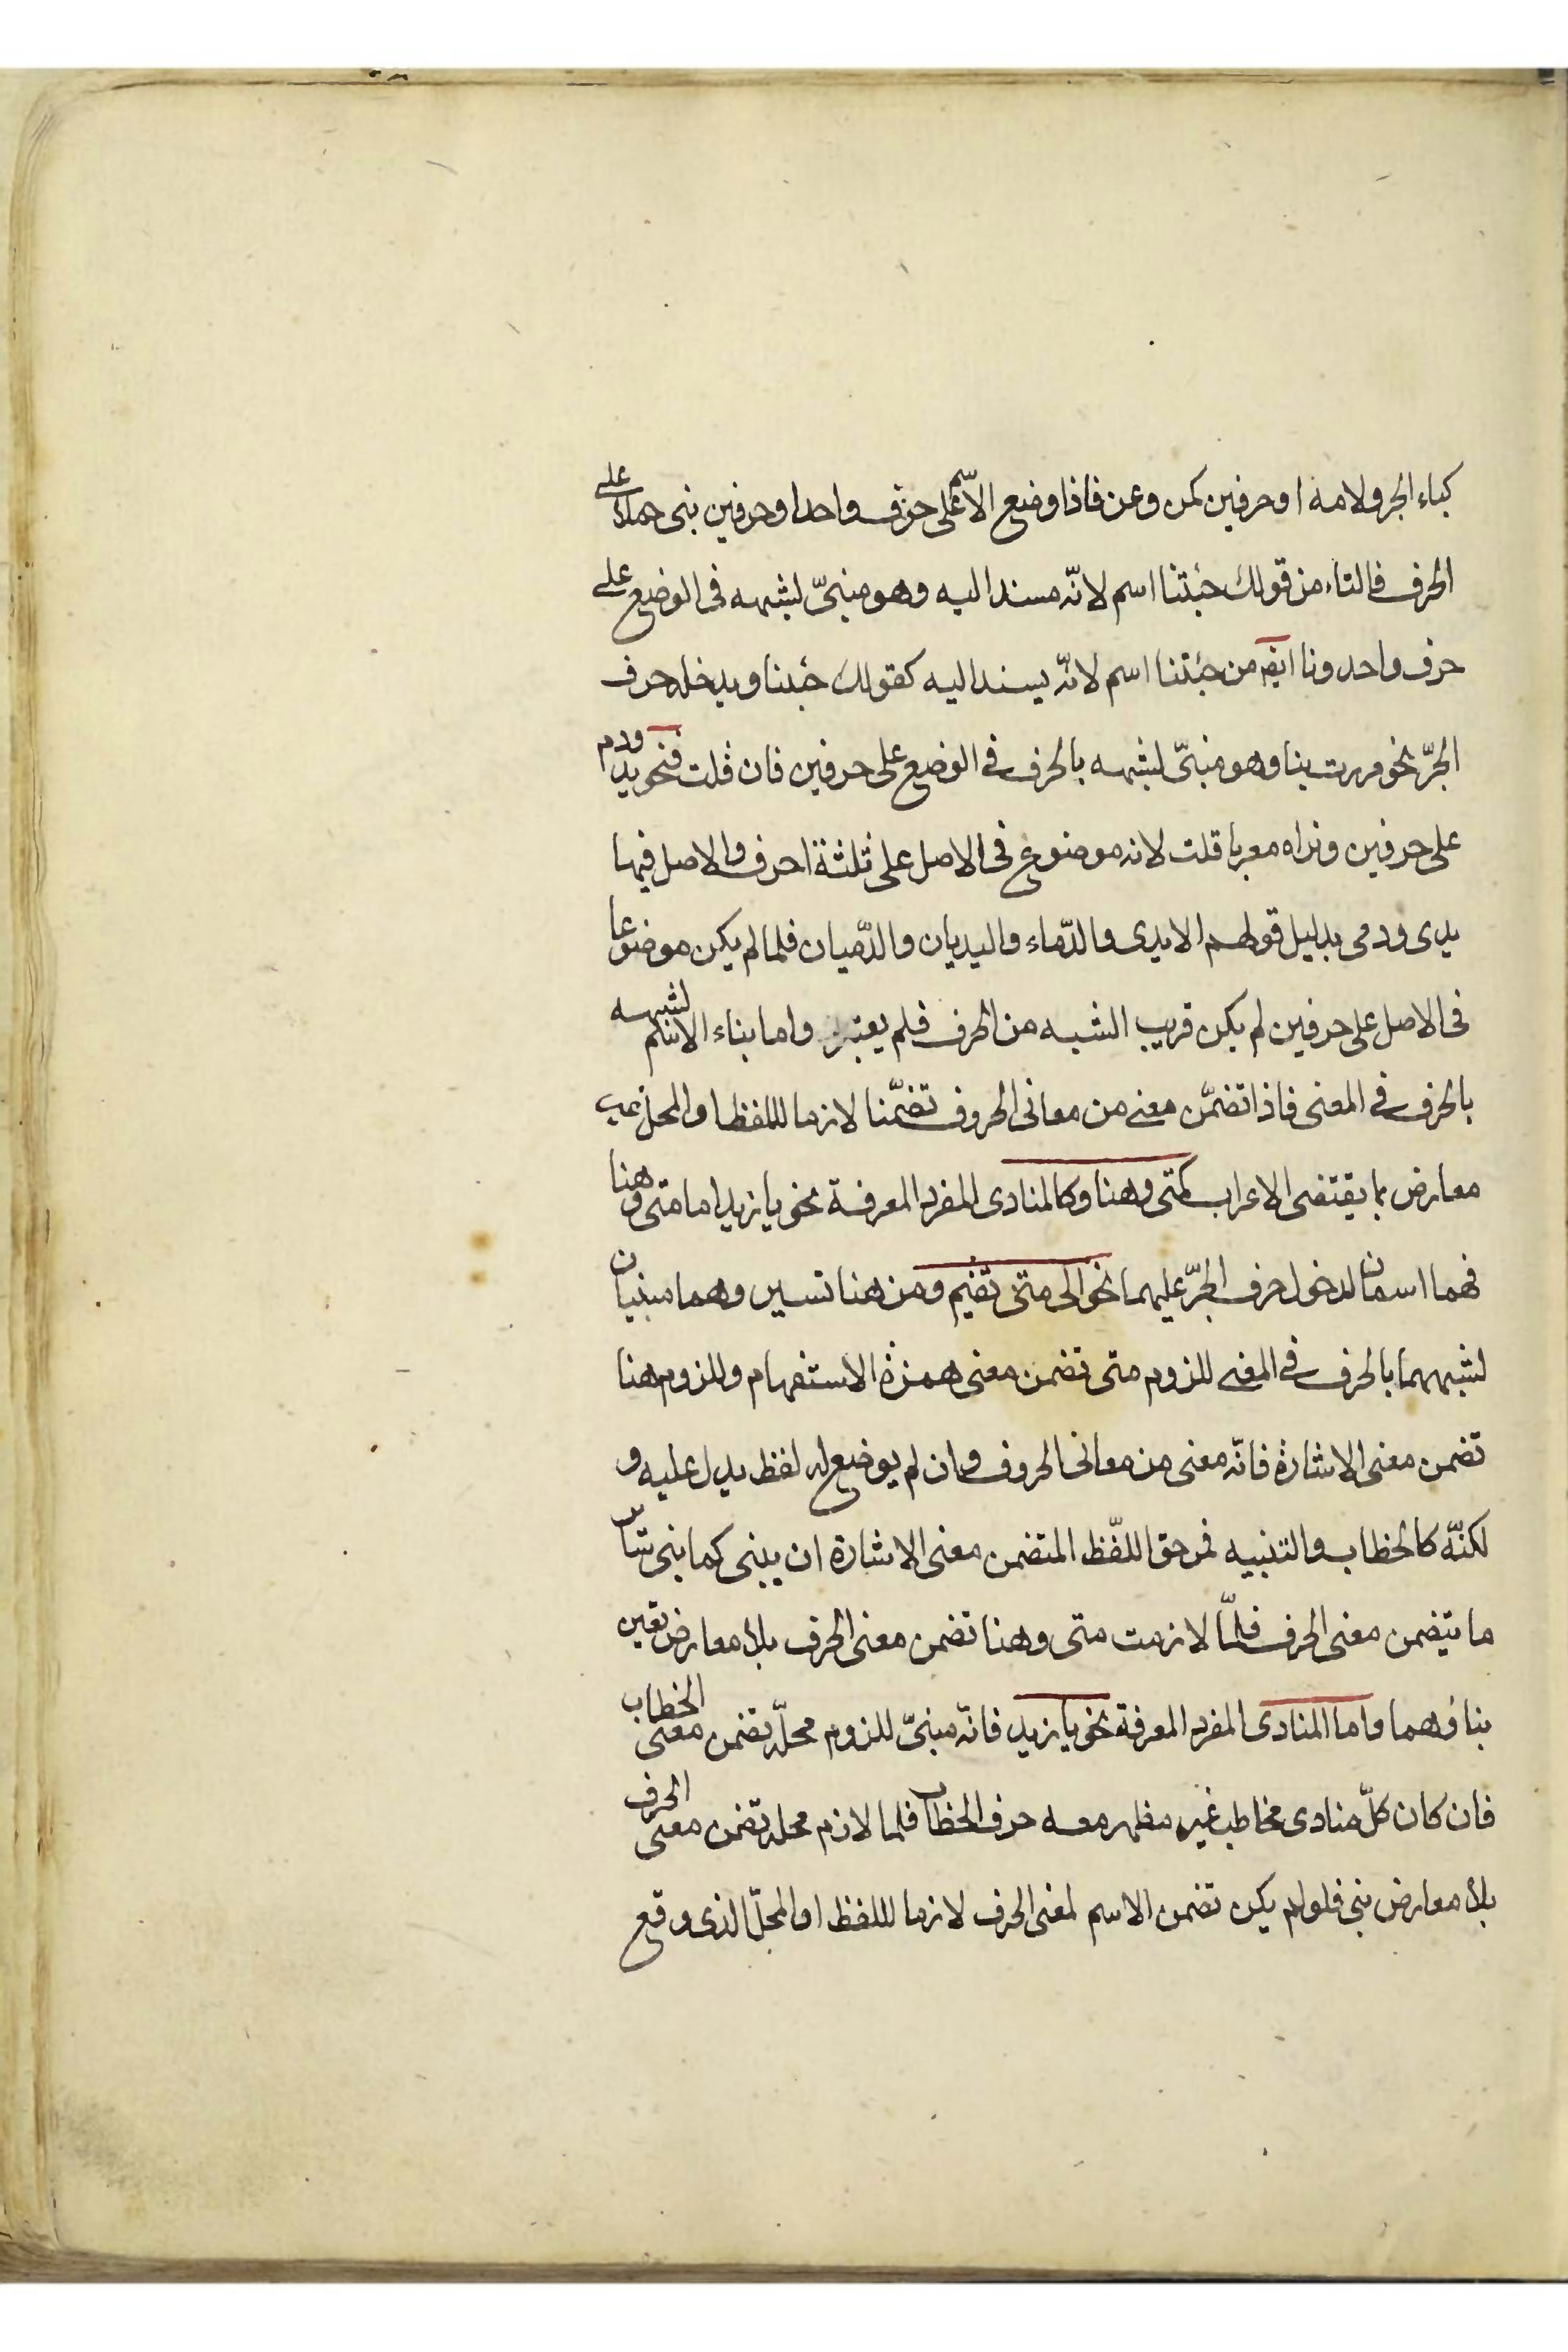 كباء الجر ولامه او حرفين كمن وعن فاذا وضع الاسم على حرف واحد او حرفين بنى حملا على
الحرف فالتاء من قولك جئتنا اسم لانّه مسند اليه وهو مبنىّ لشبهه فى الوضع على
حرف واحد ونا ايضا من جئتنا اسم لانّه يسند اليه كقولك جئنا ويدخله حرف
الجرّ نحو مررت بنا وهو مبنىّ لشبهه بالحرف فى الوضع على حرفين فان قلت فنحو يد ودم
على حرفين ونراه معربا قلت لانه موضوع فى الاصل على ثلثة احرف والاصل فيهما
يدى ودمى بدليل قولهم الايدى والدّماء واليديان والدّميان فلما لم يكن موضوعا
فى الاصل على حرفين لم يكن قريب الشبه من الحرف فلم يعتبر واما بناء الاسم لشبهه
بالحرف فى المعنى فاذا تضمّن معنى من معانى الحروف تضمّنا لازما لللفظ او المحل غير
معارض بما يقتضى الاعراب كمتى وهنا وكالمنادى المفرد المعرفة نحو يا زيد اما متى وهنا
فهما اسمان لدخول حرف الجرّ عليهما نحو الى متى تقيم ومن هنا تسير وهما مبنيان
لشبههما بالحرف فى المعنى للزوم متى تضمن معنى همزة الاستفهام وللزوم هنا
تضمن معنى الاشارة فانّه معنى من معانى الحروف وان لم يوضع له لفظ يدل عليه و
لكنّه كالخطاب والتنبيه فمن حق اللفّظ المتضمن معنى الاشارة ان يبنى كما بنى سائر
ما يتضمن معنى الحرف فلمّا لازمت متى وهنا تضمن معنى الحرف بلا معارض تعين
بناؤهما واما المنادى المفرد المعرفة نحو يا زيد فانّه مبنىّ للزوم محلّه تضمن معنى الخطاب
فان كان كلّ منادى مخاطب غير مظهر معه حرف الخطاب فلما لازم محله تضمن معنى الحرف
بلا معارض بنى فلو لم يكن تضمن الاسم لمعنى الحرف لازما لللفظ او المحلّ الذى وقع